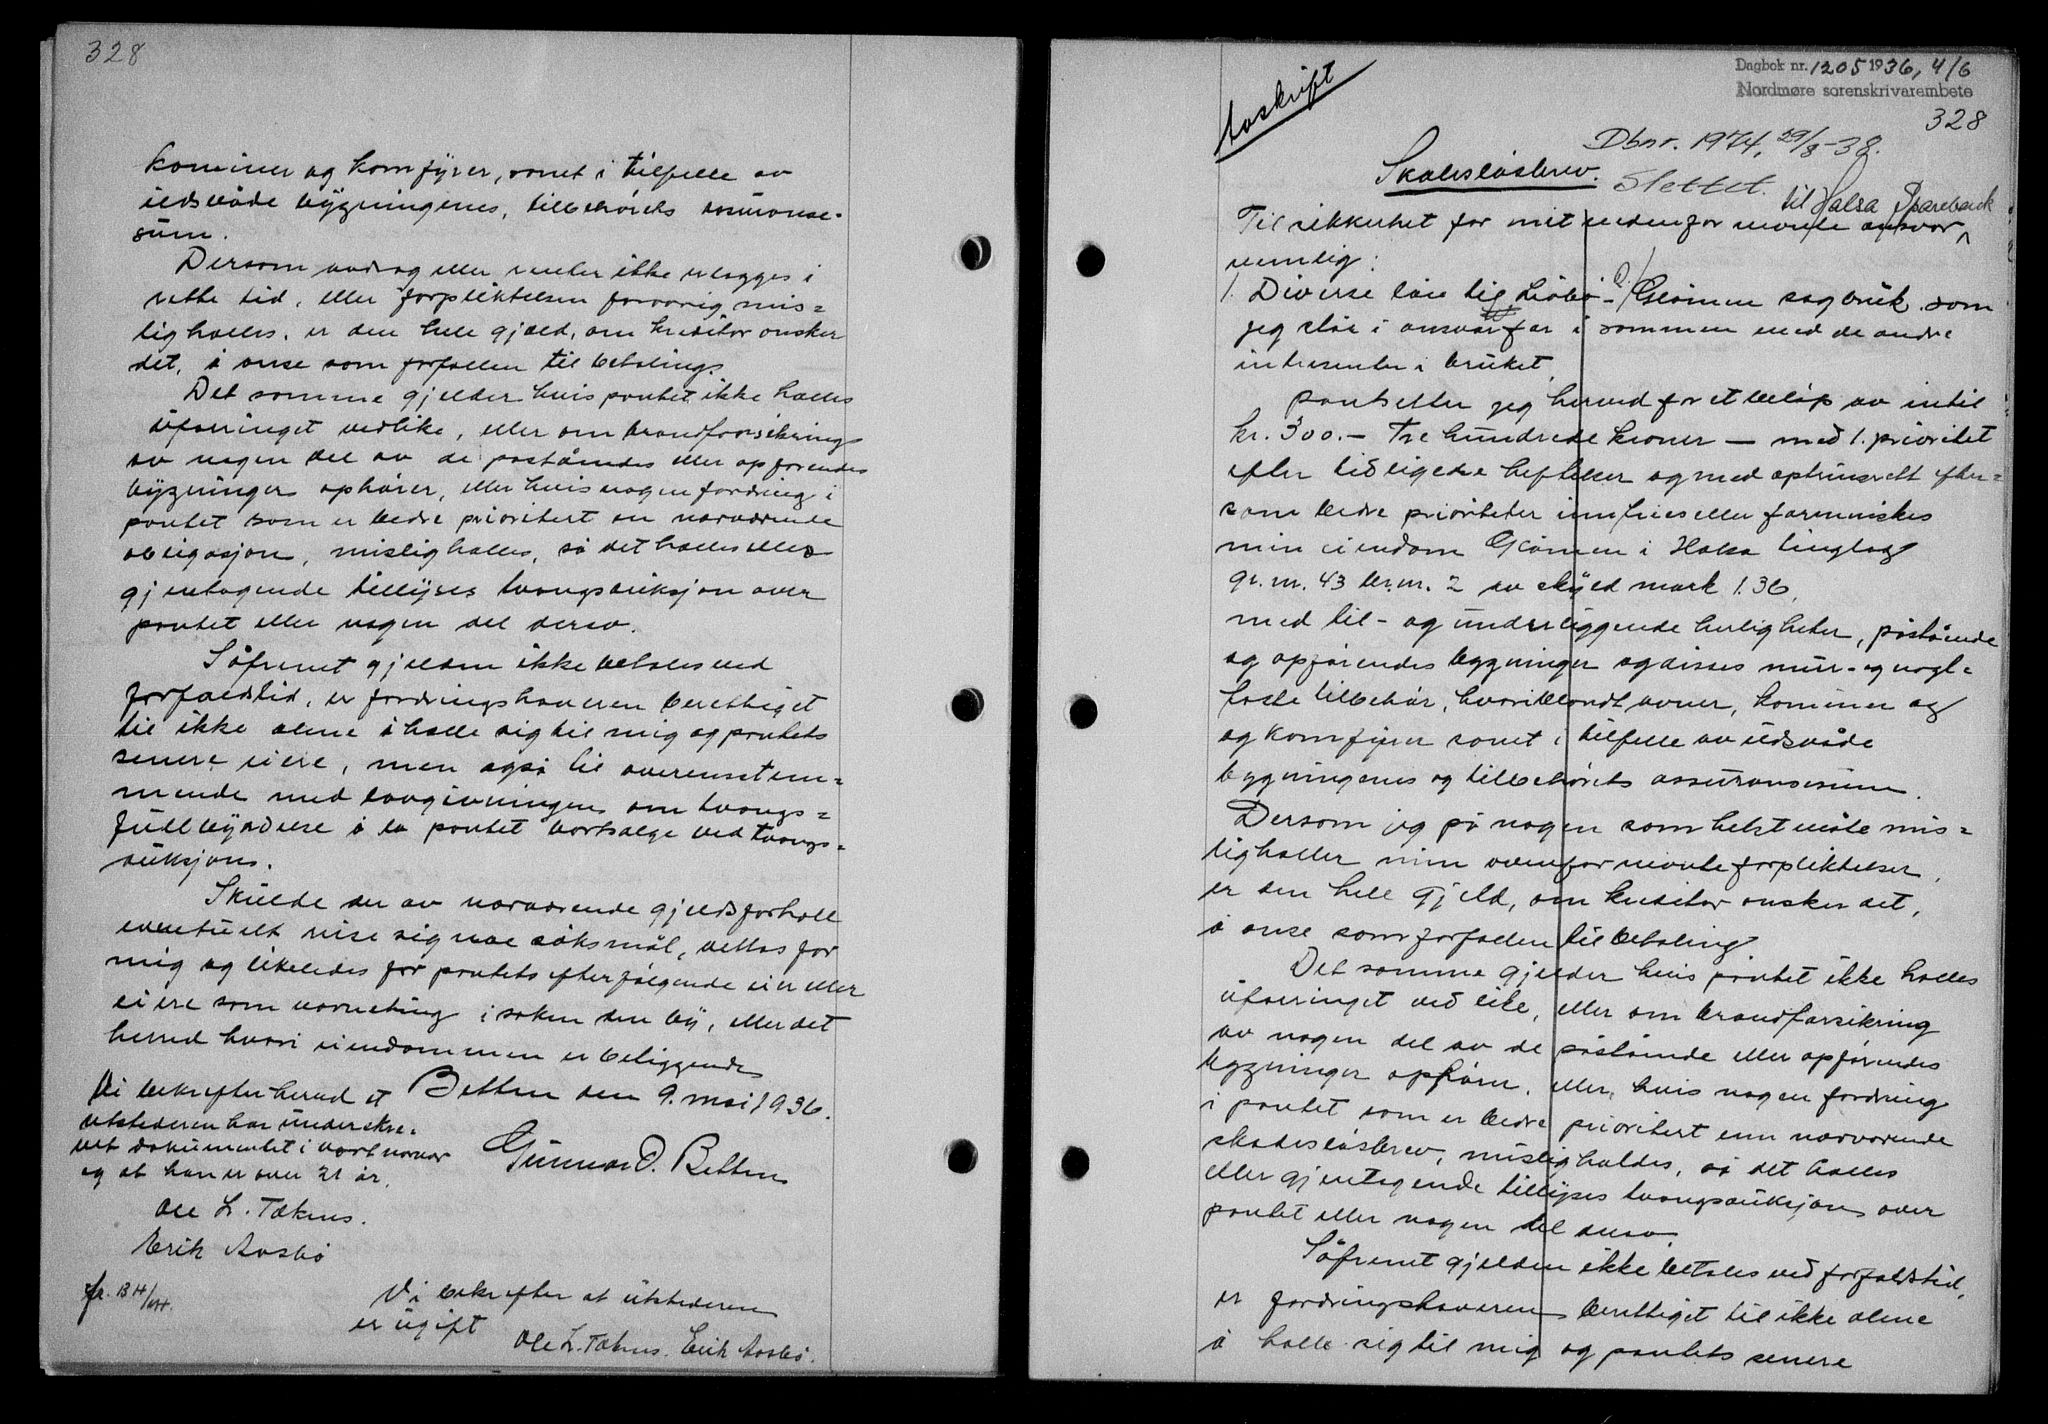 328
kominer og komfyrer, samt i tilfelle av
ildsvåde bygningenes, tilbehørets assuranse-
sum.
Dersom avdrag eller renter ikke erlegges i
rette tid, eller forpliktelsen forøvrig mis=
ligholdes, er den hele gjæld, om kreditor ønsker
det, å anse som forfallen til betaling.
Det samme gjelder hvis pantet ikke holdes
uforringet vedlike, eller om brandforsikring
av nogen del av de påståendes eller opførendes
bygninger ophører, eller hvis nogen fordring i
pantet som er bedre prioritert en nærværende
obligasjon, misligholdes, så det holdes eller
gjentagende tillyses tvangsauksjon over
pantet eller nogen del derav.
Såfremt gjelden ikke betales ved
forfaldstid, er fordringshaveren berettiget
til ikke alene å holde sig til mig og pantets
senere eiere, men også til overensstem=
mende med lovgivningen om tvangs=
fullbyrdelse å la pantet bortselge ved tvangs-
auksjon.
Skulde der av nærværende gjeldsforhold
eventuelt reise sig noe søksmål, vedtas for
mig og likeledes for pantets efterfølgende eier eller
eiere som verneting i saken den by, eller det
herred hvori eiendommen er beliggende
Betten den 9. mai 1936.
Vi bekrefter herved at
utstederen har underskre-
vet dokumentet i vort nærvær
og at han er over 21 år.
Gunnar O. Betten
Ole L. Tæknes.
Erik Aasbø
Vi bekrefter at utstederen
er ugift
Ole L. Tæknes. Erik Aasbø.
Avskrift
Dagbok nr. 1205 1936, 4/6
Nordmøre sorenskrivarembete
328
Dbnr. 1974, 29/8-38.
Skadesløsbrev. Slettet.
til Halsa Sparebank
Til sikkerhet for mit nedenfor nevnte ansvar
nemlig:
1. Diverse lån til Liabø - Glåmen sagbruk som
jeg står i ansvar for i sammen med de andre
intresenter i bruket,
pantsetter jeg herved for et beløp av intil
kr. 300.- Tre hundrede kroner — med 1. prioritet
efter tidligere heftelser og med optrinsrett efter=
som bedre prioriteter innfries eller forminskes
min eiendom Glåmen i Halsa tinglag
gr. nr. 43 br. nr. 2 av skyld mark 1.36,
med til- og underliggende herligheter, påstående
og opførendes bygninger og disses mur- og nagl-
faste tilbehør, hvoriblandt ovner, kominer og
og komfyrer samt i tilfelle av ildsvåde
bygningenes og tilbehørets assuransesum.
Dersom jeg på nogen som helst måte mis=
ligholder min ovenfor nevnte forpliktelser,
er den hele gjeld, om kreditor ønsker det,
å anse som forfallen til betaling
Det samme gjelder hvis pantet ikke holdes
uforringet ved like, eller om brandforsikring
av nogen del av de påstående eller opførendes
bygninger ophører, eller, hvis nogen fordring
i pantet som er bedre prioritert enn nærværende
skadesløsbrev, misligholdes, så det holdes
eller gjentagende tillyses tvangsauksjon over
pantet eller nogen del derav.
Såfremt gjelden ikke betales ved forfaldstid,
er fordringshaveren berettiget til ikke alene
å holde sig til mig og pantets senere